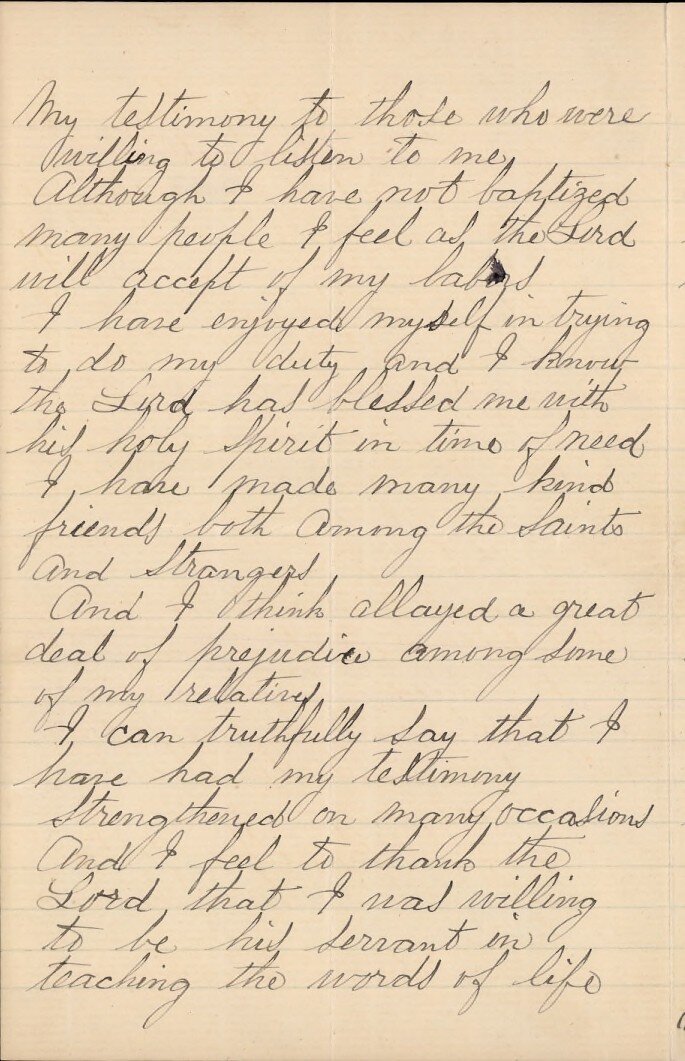 My testimony to those who were
willing to listen to me
Although I have not baptized
many people I feel as the Lord
will accept of my
I have enjoyed myself in trying
to do my duty and I know
the Lord has blessed me with
his holy spirit in time of need
I have made many kind
friends both among the Saints
and Strangers
And I think allayed a great
deal of prejudice among some
of my relatives
I can truthfully say that I
have had my testimony
strengthened on many occasions
And I feel to thank the
Lord that I was willing
to be his servant in
teaching the words of life